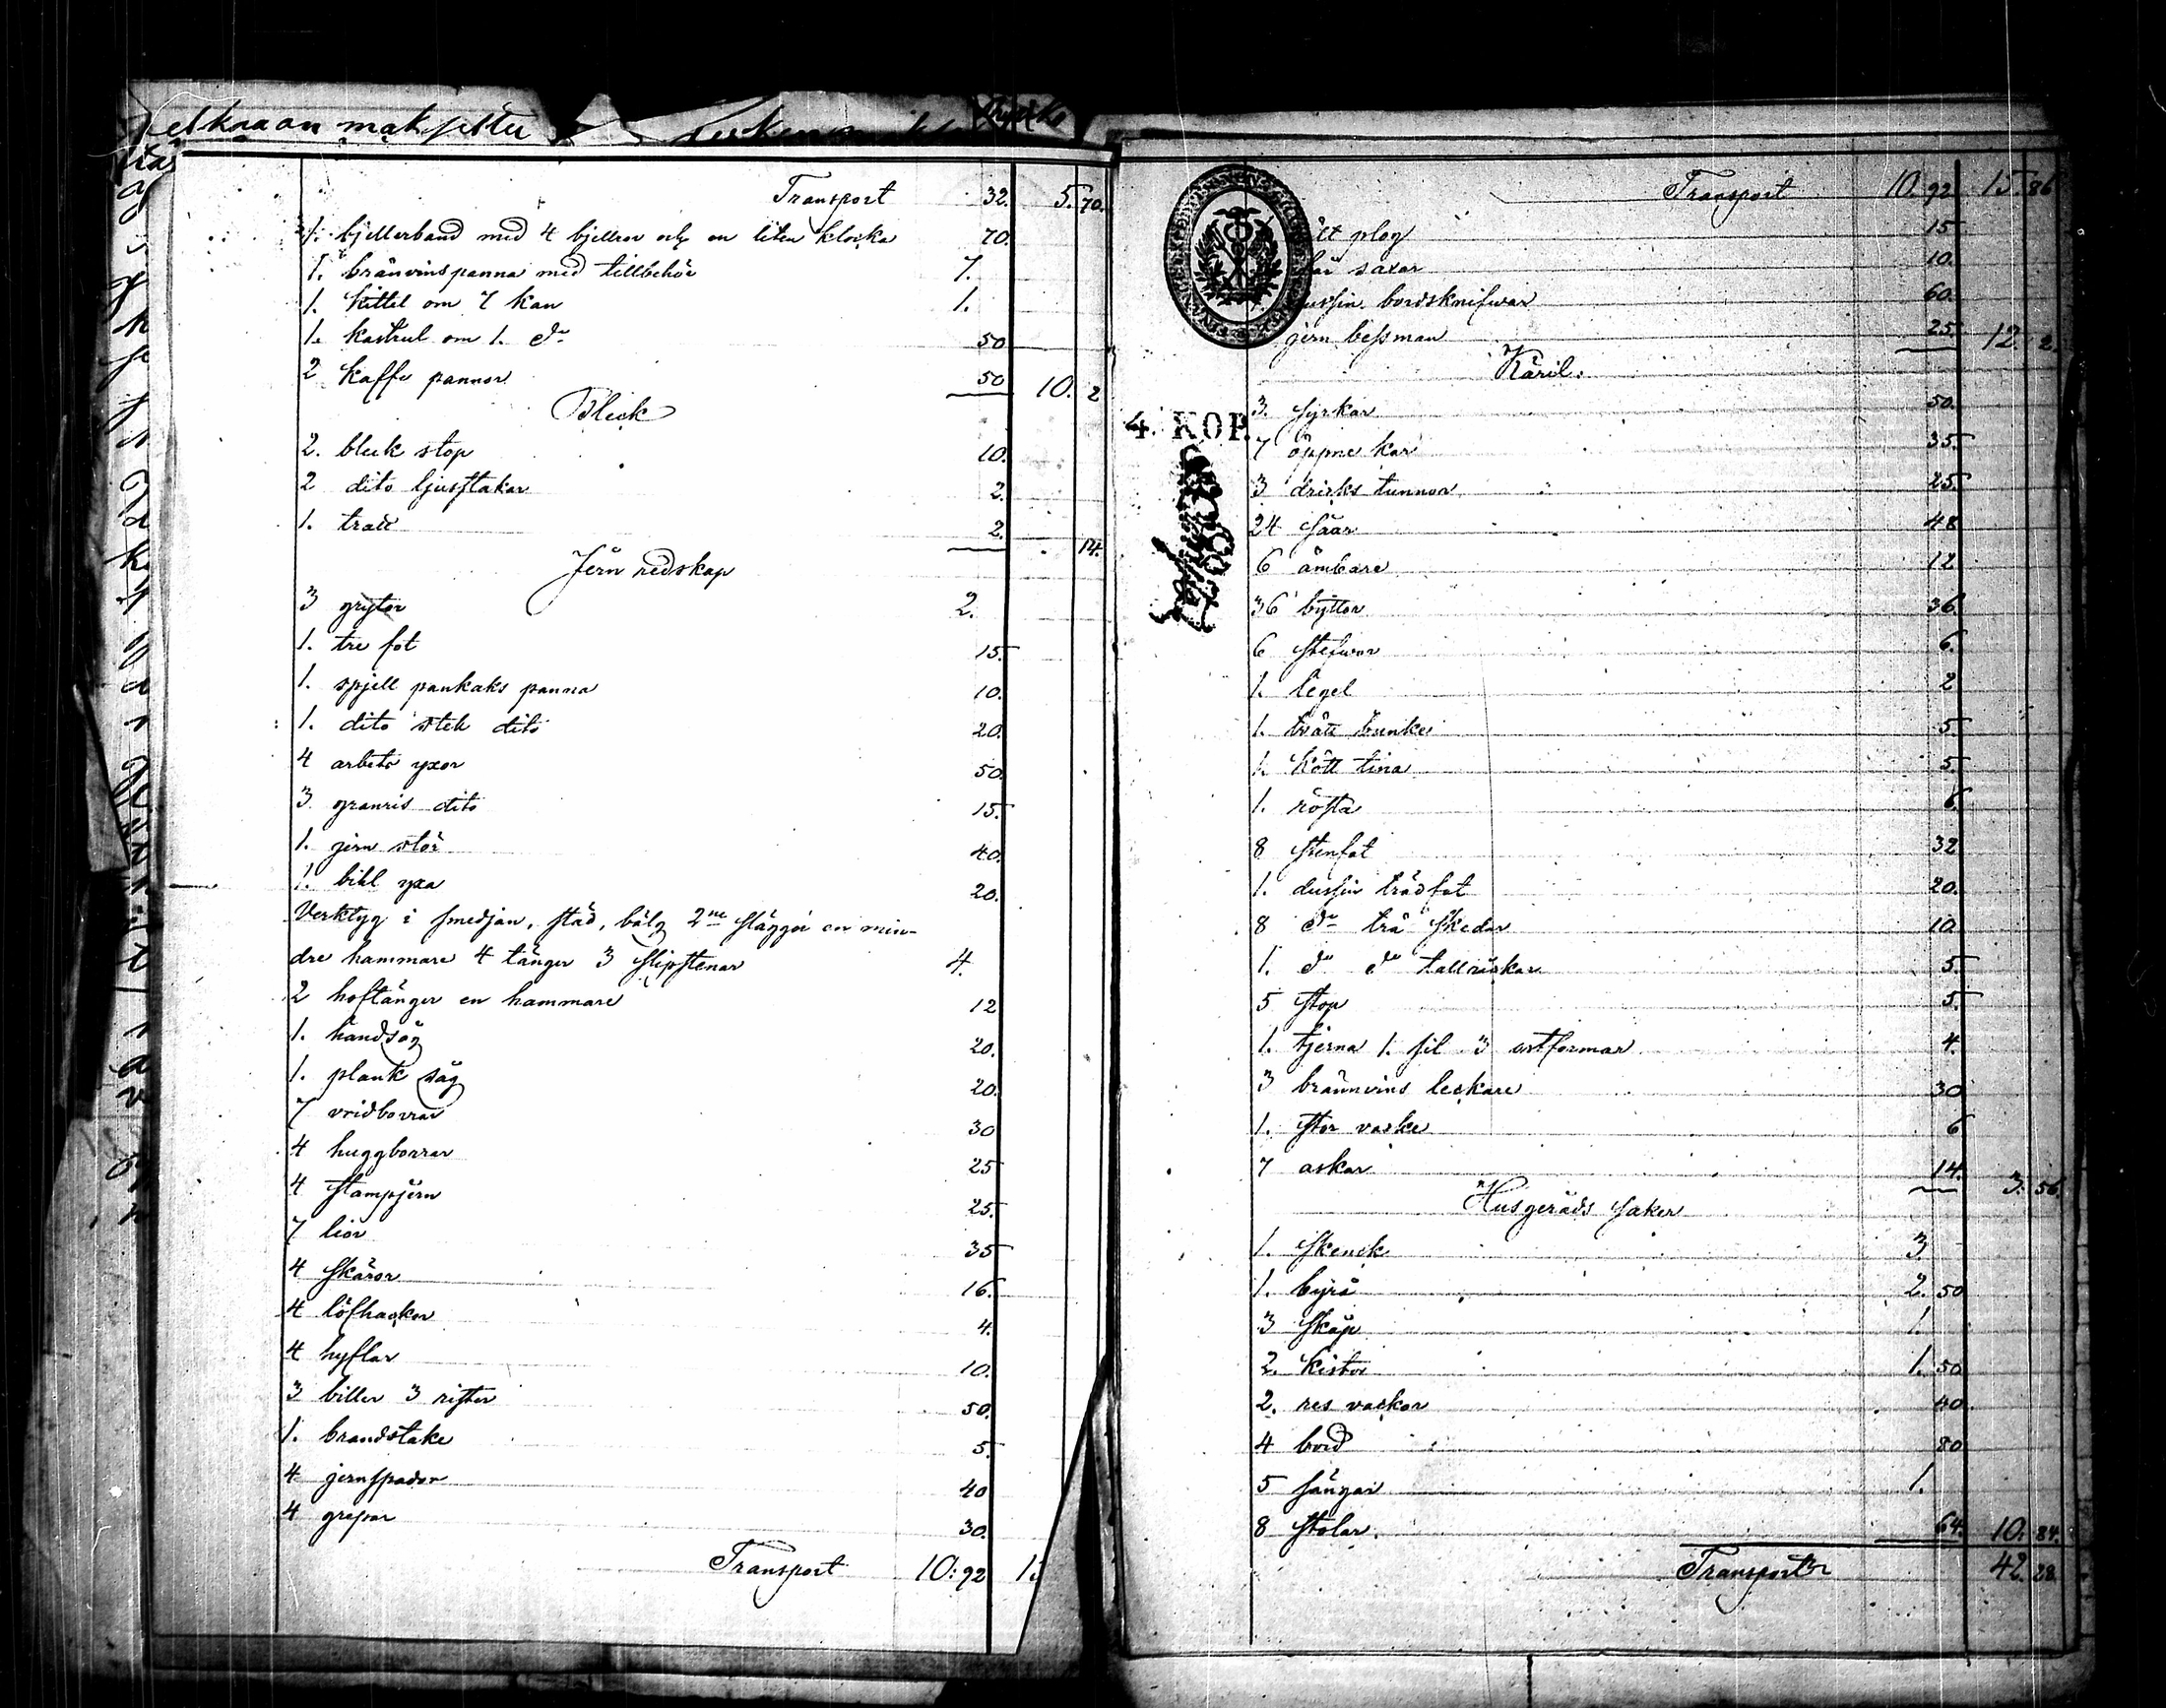 Transport 32. 5. 70.
1. bjellerband med 4 bjellror och en liten klocka 70.
1. bränvinspanna med tillbehör 7.
1. kittel om 7 kan 1.
1. kastrul om 1. do 50
2 kaffe pannor 50 10. 2
Bleck
2. bleck stop 10.
2 dito ljusstakar 2.
1. tratt 2. 14.
Jern redskap
3 grytor 2.
1. tre fot 15.
1. spjell pankaks panna 10.
1. dito stek dito 20.
4 arbets yxor 50.
3 granris dito 15.
1. jern stör 40.
1. bihl yxa 20.
Verktyg i smedjan, städ, bälg 2ne släggor en min-
dre hammare 4 tänger 3 slipstenar 4.
2 hoftänger en hammare 12
1. handsåg 20.
1. plank såg 20.
7 vridborrar 30
4 huggborrar 25
4 stampjern 25.
7 lior 35
4 skäror 16.
4 löfhackor 4.
4 hyflar 10.
3 biller 3 rister 50.
1. brandstake 5.
4 jernspador 40
4 grepar 30.
Transport 10: 92
Transport 10. 92 15. 86
plog 15
saxar 10.
bordsknifwar 60.
jern bessman 25. 12. 2.
Käril.
4. KOP.
3. fyrkar 50.
7 öppne kar 35.
3 dricks tunnor 25.
24 såar 48
6 ämbare 12
36 byttor 36.
6 stefwor 6.
1. legel 2
1. tvätt bunke 5
1. kött tina 5.
1. 6.
8 stenfat 32
1. dussin trädfat 20.
8 do trä skedar 10
1. do do tallriskar 5.
5 stop 5.
1. tjerna 1. sil 3 ostformar 4.
3 brännvins leckare 30
1. stor vacke 6
7 askar 14. 3. 56.
Husgeråds saker
1. skenck 3.
1. byrå 2. 50
3 skåp 1.
2. kistor 1. 50
2. res vackor 40
4 bord 80
5 sängar 1.
8 stolar. 64. 10. 84.
Transport 42. 28